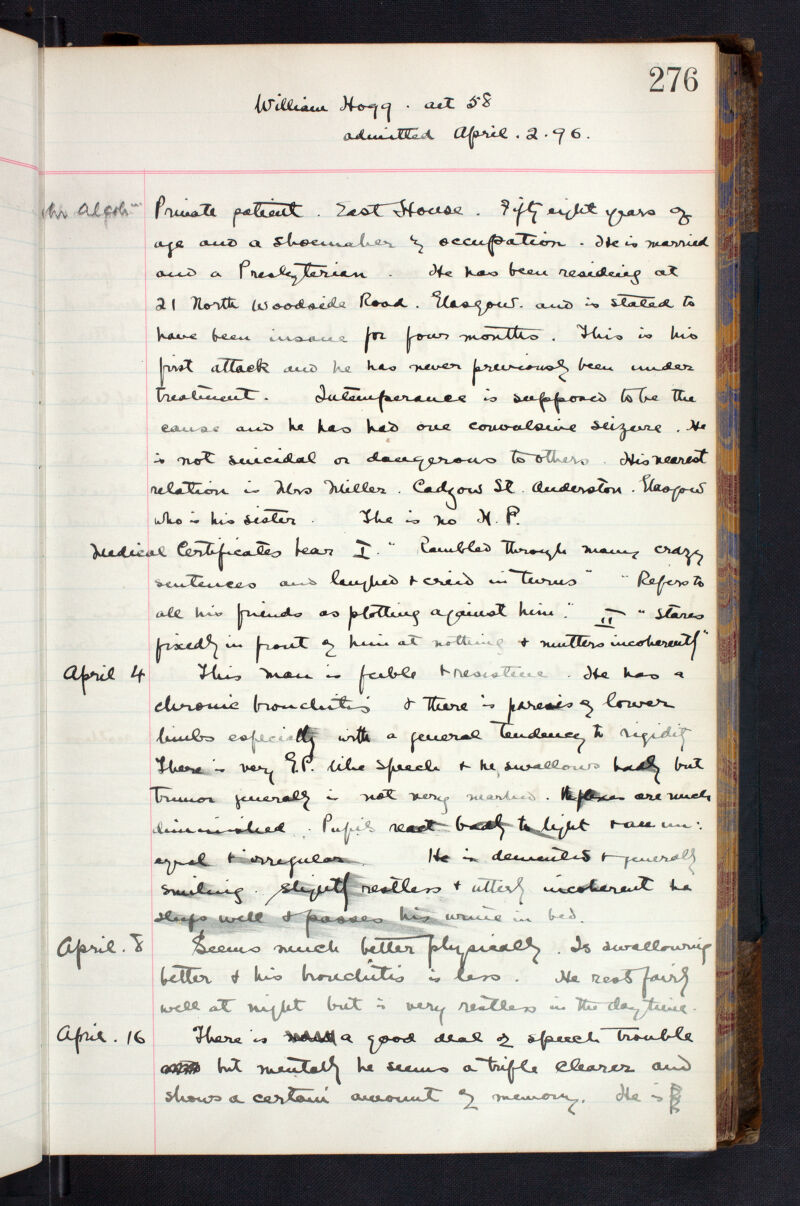 276
William Hogg. aet 58
admitted April. 2. 96.
Private patient. East House. Fifty eight years of
age and a shoemaker by occupation. He is married
and a Presbyterian. He has been residing at
21 North Woodside Road. Glasgow. and is stated to
have been insane for four months. This is his
first attack and he has never previously been under
treatment. Intemperance is supposed to be the
cause and he has had one convulsive seizure. He
is not suicidal or dangerous to others. His nearest
relation is Mrs Miller. Cadzow St. Anderston. Glasgow
who is his sister. The is no H. P.
Medical Certificates bear I. "Rambled through many crazy
sentences and laughed & cried in turns" "Refers to
all his friends as plotting against him." II "Stares
fixedly in front of him at nothing & mutters incoherently"
April 4 This man is feeble & resistive. He has a
chronic bronchitis & there is paresis of lower
limbs especially with a general tendency to rigidity
There is very G.P. like speech & he swallows badly but
tremor generally is not very marked. Reflexes are much
diminished. Pupils react badly to light & are un:
equal & irregular. He is demented & generally
smiling. Slightly restless & utterly incoherent he
sleeps well & passes his urine in bed.
April. 8 Seems much better physically. Is swallowing
better & his bronchitis is less. He rests fairly
well at night but is very restless in the daytime.
April. 16 There is a good deal of speech trouble
but mentally he seems a trifle clearer and
shows a certain amount of memory. He is